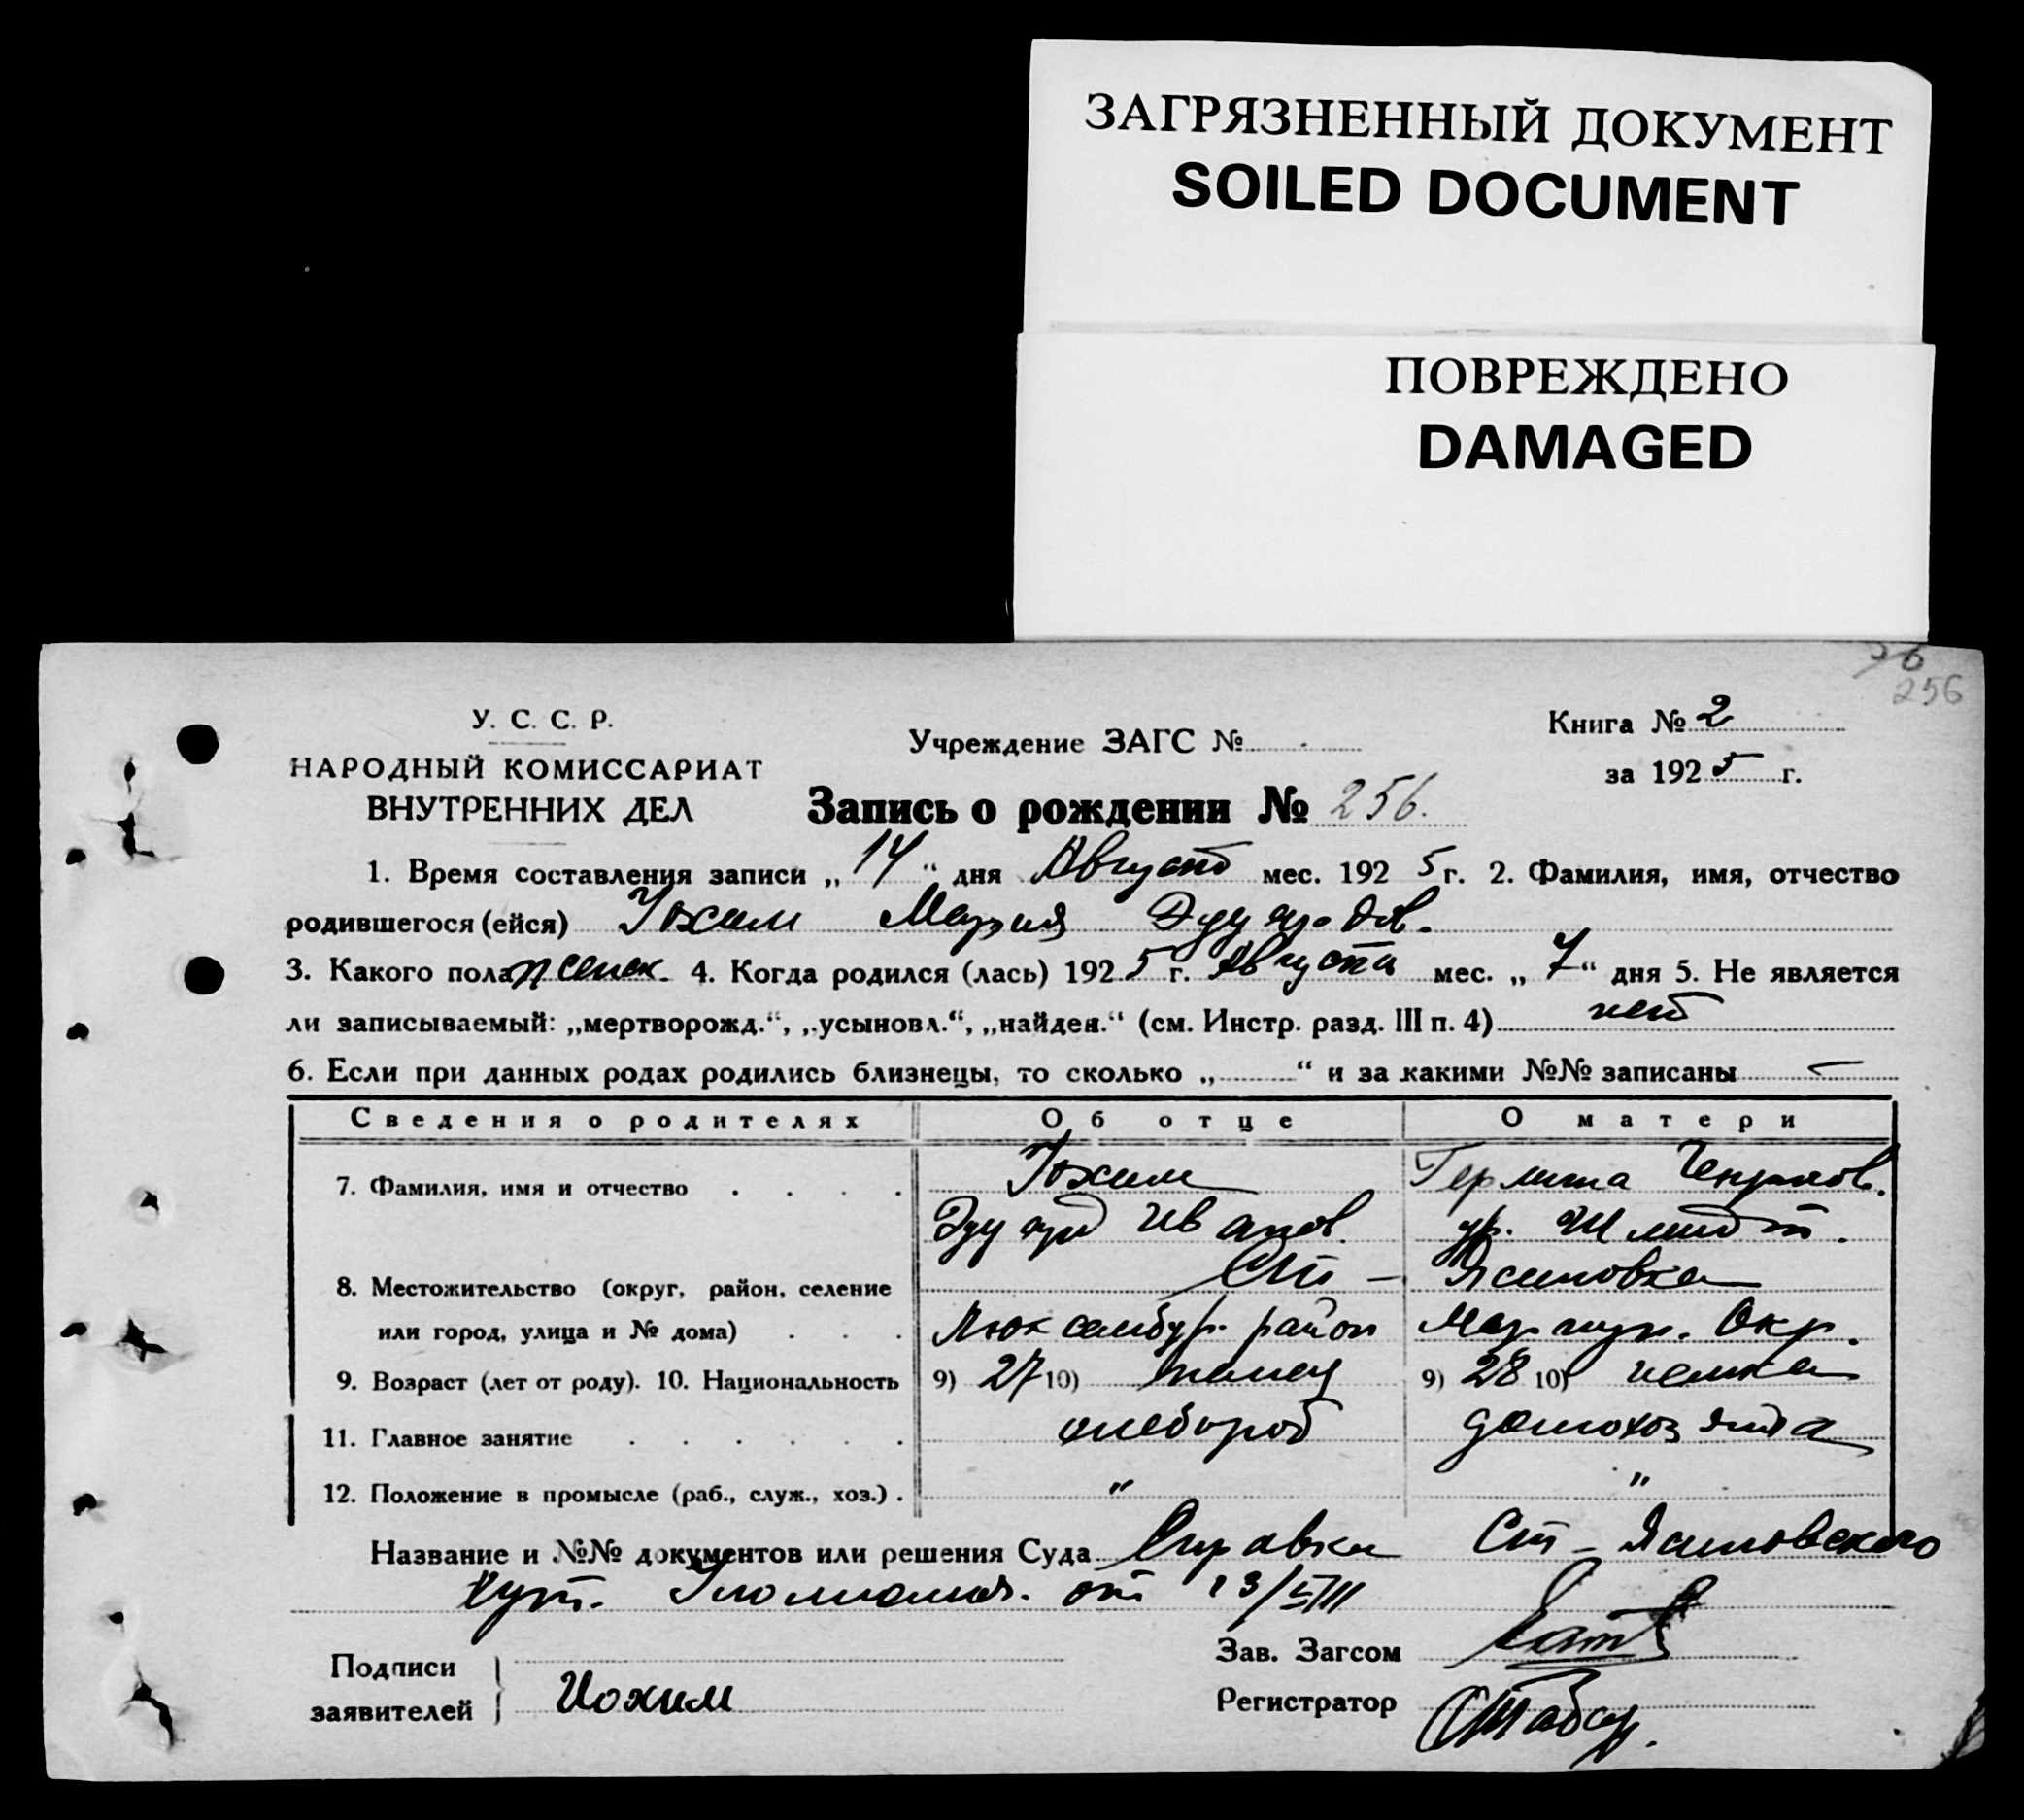 ЗАГРЯЗНЕННЫЙ ДОКУМЕНТ
SOILED DOCUMENT
ПОВРЕЖДЕНО
DAMAGED
256
У. С. С. Р.
НАРОДНЫЙ КОМИССАРИАТ
ВНУТРЕННИХ ДЕЛ
Учреждение ЗАГС №
Книга № 2
за 1925 г.
Запись о рождении № 256.
1. Время составления записи „14“ дня Август мес. 1925 г. 2. Фамилия, имя, отчество
родившегося (ейся) Иохим Мария Эдуардов.
3. Какого пола женск. 4. Когда родился (лась) 1925 г. Августа мес. „7“ дня 5. Не является
ли записываемый: „мертворожд.“, „усыновл.“, „найден.“ (см. Инстр. разд. III п. 4) нет
6. Если при данных родах родились близнецы, то сколько „ “ и за какими №№ записаны —
Сведения о родителях Об отце О матери
7. Фамилия, имя и отчество Иохим Гермина
Эдуард Иванов. ур. Шмидт.
8. Местожительство (округ, район, селение Ст - Ясиновка
или город, улица и № дома) Люксембур. район Мариуп. Окр.
9. Возраст (лет от роду). 10. Национальность 9) 27 10) немец 9) 28 10) немка
11. Главное занятие хлебороб домохозяйка
12. Положение в промысле (раб., служ., хоз.) " "
Название и №№ документов или решения Суда Справка Ст - Ясиновского
хут. от 13/VIII
Подписи
заявителей Иохим
Зав. Загсом
Регистратор